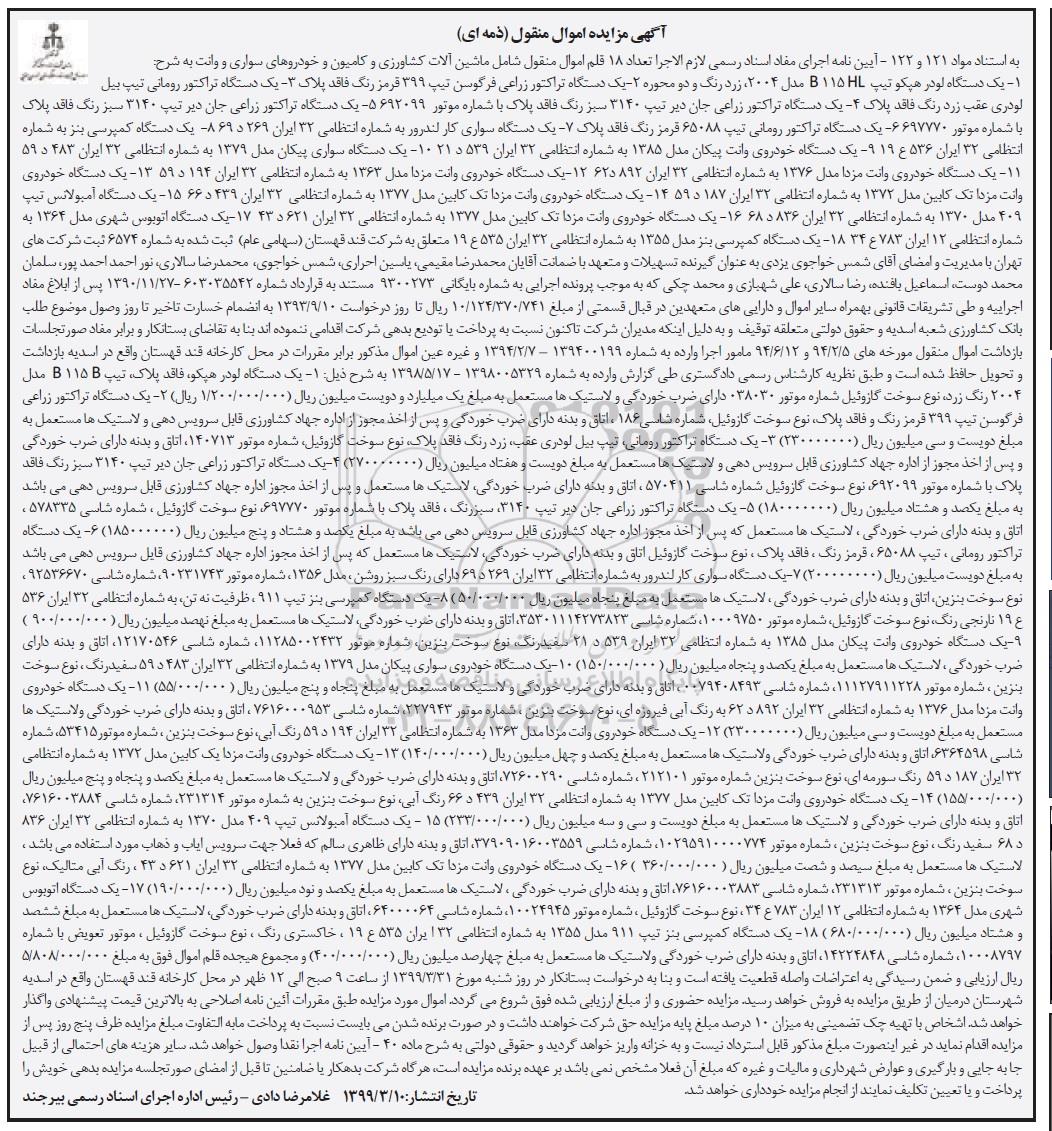 آگهی مزایده اموال منقول (ذمه ای)
به استناد مواد ۱۲۱ و ۱۲۲ - آیین نامه اجرای مفاد اسناد رسمی لازم الاجرا تعداد ۱۸ قلم اموال منقول شامل ماشین آلات کشاورزی و کامیون و خودروهای سواری و وانت به شرح:
۱- یک دستگاه لودر هپکو تیپ B ۱۱۵ HL مدل ۲۰۰۴، زرد رنگ و دو محوره ۲-یک دستگاه تراکتور زراعی فرگوسن تیپ ۳۹۹ قرمز رنگ فاقد پلاک ۳-یک دستگاه تراکتور رومانی تیپ بیل
لودری عقب زرد رنگ فاقد پلاک ۴- یک دستگاه تراکتور زراعی جان دیر تیپ ۳۱۴۰ سبز رنگ فاقد پلاک با شماره موتور ۶۹۲۰۹۹ ۵-یک دستگاه تراکتور زراعی جان دیر تیپ ۳۱۴۰ سبز رنگ فاقد پلاک
با شماره موتور ۶۹۷۷۷۰ ۶- یک دستگاه تراکتور رومانی تیپ ۶۵۰۸۸ قرمز رنگ فاقد پلاک ۷- یک دستگاه سواری کار لندرور به شماره انتظامی ۳۲ ایران ۲۶۹ د ۶۹ ۸- یک دستگاه کمپرسی بنز به شماره
انتظامی ۳۲ ایران ۵۳۶ ع ۱۹ ۹- یک دستگاه خودروی وانت پیکان مدل ۱۳۸۵ به شماره انتظامی ۳۲ ایران ۵۳۹ د ۲۱ ۱۰- یک دستگاه سواری پیکان مدل ۱۳۷۹ به شماره انتظامی ۳۲ ایران ۴۸۳ د ۵۹
۱۱- یک دستگاه خودروی وانت مزدا مدل ۱۳۷۶ به شماره انتظامی ۳۲ ایران ۸۹۲ د۶۲ ۱۲-یک دستگاه خودروی وانت مزدا مدل ۱۳۶۳ به شماره انتظامی ۳۲ ایران ۱۹۴ د ۵۹ ۱۳- یک دستگاه خودروی
وانت مزدا تک کابین مدل ۱۳۷۲ به شماره انتظامی ۳۲ ایران ۱۸۷ د ۵۹ ۱۴- یک دستگاه خودروی وانت مزدا تک کابین مدل ۱۳۷۷ به شماره انتظامی ۳۲ ایران ۴۳۹ د ۶۶ ۱۵- یک دستگاه آمبولانس تیپ
۴۰۹ مدل ۱۳۷۰ به شماره انتظامی ۳۲ ایران ۸۳۶ د ۶۸ ۱۶- یک دستگاه خودروی وانت مزدا تک کابین مدل ۱۳۷۷ به شماره انتظامی ۳۲ ایران ۶۲۱ د ۴۳ ۱۷-یک دستگاه اتوبوس شهری مدل ۱۳۶۴ به
شماره انتظامی ۱۲ ایران ۷۸۳ ع ۳۴ ۱۸- یک دستگاه کمپرسی بنز مدل ۱۳۵۵ به شماره انتظامی ۳۲ ایران ۵۳۵ ع ۱۹ متعلق به شرکت قند قهستان (سهامی عام) ثبت شده به شماره ۶۵۷۴ ثبت شرکت های
تهران با مدیریت و امضای آقای شمس خواجوی یزدی به عنوان گیرنده تسهیلات و متعهد با ضمانت آقایان محمدرضا مقیمی، یاسین احراری، شمس خواجوی، محمدرضا سالاری، نور احمد احمد پور، سلمان
محمد دوست، اسماعیل بافنده، رضا سالاری، علی شهبازی و محمد چکی که به موجب پرونده اجرایی به شماره بایگانی ۹۳۰۰۲۷۳ مستند به قرارداد شماره ۶۰۳۰۳۵۵۴۲ -۱۳۹۰/۱۱/۲۷ پس از ابلاغ مفاد
اجراییه و طی تشریفات قانونی بهمراه سایر اموال و دارایی های متعهدین در قبال قسمتی از مبلغ ۱۰/۱۲۴/۳۷۰/۷۴۱ ریال تا روز درخواست ۱۳۹۳/۹/۱۰ به انضمام خسارت تاخیر تا روز وصول موضوع طلب
بانک کشاورزی شعبه اسدیه و حقوق دولتی متعلقه توقیف و به دلیل اینکه مدیران شرکت تاکنون نسبت به پرداخت یا تودیع بدهی شرکت اقدامی ننموده اند بنا به تقاضای بستانکار و برابر مفاد صورتجلسات
بازداشت اموال منقول مورخه های ۹۴/۲/۵ و ۹۴/۶/۱۲ مامور اجرا وارده به شماره ۱۳۹۴۰۰۱۹۹ – ۱۳۹۴/۲/۷ و غیره عین اموال مذکور برابر مقررات در محل کارخانه قند قهستان واقع در اسدیه بازداشت
و تحویل حافظ شده است و طبق نظریه کارشناس رسمی دادگستری طی گزارش وارده به شماره ۱۳۹۸۰۰۵۳۲۹ - ۱۳۹۸/۵/۱۷ به شرح ذیل: ۱- یک دستگاه لودر هپکو، فاقد پلاک، تیپ B ۱۱۵ B مدل
۲۰۰۴ رنگ زرد، نوع سوخت گازوئیل شماره موتور ۰۳۸۰۳۰ دارای ضرب خوردگی و لاستیک ها مستعمل به مبلغ یک میلیارد و دویست میلیون ریال (۱/۲۰۰/۰۰۰/۰۰۰ ریال) ۲- یک دستگاه تراکتور زراعی
فرگوسن تیپ ۳۹۹ قرمز رنگ و فاقد پلاک، نوع سوخت گازوئیل، شماره شاسی ۱۸۶ ، اتاق و بدنه دارای ضرب خوردگی و پس از اخذ مجوز از اداره جهاد کشاورزی قابل سرویس دهی و لاستیک ها مستعمل به
مبلغ دویست و سی میلیون ریال (۲۳۰۰۰۰۰۰۰) ۳- یک دستگاه تراکتور رومانی، تیپ بیل لودری عقب، زرد رنگ فاقد پلاک، نوع سوخت گازوئیل، شماره موتور ۱۴۰۷۱۳، اتاق و بدنه دارای ضرب خوردگی
و پس از اخذ مجوز از اداره جهاد کشاورزی قابل سرویس دهی و لاستیک ها مستعمل به مبلغ دویست و هفتاد میلیون ریال (۲۷۰۰۰۰۰۰۰) ۴-یک دستگاه تراکتور زراعی جان دیر تیپ ۳۱۴۰ سبز رنگ فاقد
پلاک با شماره موتور ۶۹۲۰۹۹، نوع سوخت گازوئیل شماره شاسی ۵۷۰۴۱۱ ، اتاق و بدنه دارای ضرب خوردگی، لاستیک ها مستعمل و پس از اخذ مجوز اداره جهاد کشاورزی قابل سرویس دهی می باشد
به مبلغ یکصد و هشتاد میلیون ریال (۱۸۰۰۰۰۰۰۰) ۵- یک دستگاه تراکتور زراعی جان دیر تیپ ۳۱۴۰، سبزرنگ ، فاقد پلاک با شماره موتور ۶۹۷۷۷۰، نوع سوخت گازوئیل ، شماره شاسی ۵۷۸۳۳۵ ،
اتاق و بدنه دارای ضرب خوردگی ، لاستیک ها مستعمل که پس از اخذ مجوز اداره جهاد کشاورزی قابل سرویس دهی می باشد به مبلغ یکصد و هشتاد و پنج میلیون ریال (۱۸۵۰۰۰۰۰۰) ۶- یک دستگاه
تراکتور رومانی ، تیپ ۶۵۰۸۸ ، قرمز رنگ ، فاقد پلاک ، نوع سوخت گازوئیل اتاق و بدنه دارای ضرب خوردگی، لاستیک ها مستعمل که پس از اخذ مجوز اداره جهاد کشاورزی قابل سرویس دهی می باشد
به مبلغ دویست میلیون ریال (۲۰۰۰۰۰۰۰۰) ۷-یک دستگاه سواری کار لندرور به شماره انتظامی ۳۲ ایران ۲۶۹ د ۶۹ دارای رنگ سبز روشن ، مدل ۱۳۵۶، شماره موتور ۹۰۲۳۱۷۴۳، شماره شاسی ۹۲۵۳۶۶۷۰ ،
نوع سوخت بنزین، اتاق و بدنه دارای ضرب خوردگی ، لاستیک ها مستعمل به مبلغ پنجاه میلیون ریال (۵۰/۰۰۰/۰۰۰) ۸- یک دستگاه کمپرسی بنز تیپ ۹۱۱ ، ظرفیت نه تن، به شماره انتظامی ۳۲ ایران ۵۳۶
ع ۱۹ نارنجی رنگ، نوع سوخت گازوئیل، شماره موتور ۱۰۰۰۹۷۵۰، شماره شاسی ۳۵۳۰۱۱۱۴۲۷۳۸۲۳، اتاق و بدنه دارای ضرب خوردگی، لاستیک ها مستعمل به مبلغ نهصد میلیون ریال (۹۰۰/۰۰۰/۰۰۰ )
۹-یک دستگاه خودروی وانت پیکان مدل ۱۳۸۵ به شماره انتظامی ۳۲ ایران ۵۳۹ د ۲۱ سفیدرنگ، نوع سوخت بنزین، شماره موتور ۱۱۲۸۵۰۰۲۴۳۲، شماره شاسی ۱۲۱۷۰۵۴۶، اتاق و بدنه دارای
ضرب خوردگی ، لاستیک ها مستعمل به مبلغ یکصد و پنجاه میلیون ریال (۱۵۰/۰۰۰/۰۰۰) ۱۰-یک دستگاه خودروی سواری پیکان مدل ۱۳۷۹ به شماره انتظامی ۳۲ ایران ۴۸۳ د ۵۹ سفیدرنگ ، نوع سوخت
بنزین ، شماره موتور ۱۱۱۲۷۹۱۱۲۲۸، شماره شاسی ۰۰۷۹۴۰۸۴۹۳، اتاق و بدنه دارای ضرب خوردگی و لاستیک ها مستعمل به مبلغ پنجاه و پنج میلیون ریال (۵۵/۰۰۰/۰۰۰) ۱۱- یک دستگاه خودروی
وانت مزدا مدل ۱۳۷۶ به شماره انتظامی ۳۲ ایران ۸۹۲ د ۶۲ به رنگ آبی فیروزه ای، نوع سوخت بنزین ، شماره موتور ۲۲۷۹۴۳، شماره شاسی ۷۶۱۶۰۰۰۹۵۳ ، اتاق و بدنه دارای ضرب خوردگی ولاستیک ها
مستعمل به مبلغ دویست و سی میلیون ریال (۲۳۰۰۰۰۰۰۰) ۱۲- یک دستگاه خودروی وانت مزدا مدل ۱۳۶۳ به شماره انتظامی ۳۲ ایران ۱۹۴ د ۵۹ رنگ آبی، نوع سوخت بنزین ، شماره موتور۵۳۴۱۵، شماره
شاسی ۶۳۶۴۵۹۸، اتاق و بدنه دارای ضرب خوردگی ولاستیک ها مستعمل به مبلغ یکصد و چهل میلیون ریال (۱۴۰/۰۰۰/۰۰۰) ۱۳- یک دستگاه خودروی وانت مزدا یک کابین مدل ۱۳۷۲ به شماره انتظامی
۳۲ ایران ۱۸۷ د ۵۹ رنگ سورمه ای، نوع سوخت بنزین شماره موتور ۲۱۲۱۰۱ ، شماره شاسی ۷۲۶۰۰۲۹۰، اتاق و بدنه دارای ضرب خوردگی و لاستیک ها مستعمل به مبلغ یکصد و پنجاه و پنج میلیون ریال
(۱۵۵/۰۰۰/۰۰۰) ۱۴- یک دستگاه خودروی وانت مزدا تک کابین مدل ۱۳۷۷ به شماره انتظامی ۳۲ ایران ۴۳۹ د ۶۶ رنگ آبی، نوع سوخت بنزین به شماره موتور ۲۳۱۳۱۴، شماره شاسی ۷۶۱۶۰۰۳۸۸۴،
اتاق و بدنه دارای ضرب خوردگی و لاستیک ها مستعمل به مبلغ دویست و سی و سه میلیون ریال (۲۳۳/۰۰۰/۰۰۰) ۱۵ - یک دستگاه آمبولانس تیپ ۴۰۹ مدل ۱۳۷۰ به شماره انتظامی ۳۲ ایران ۸۳۶
د ۶۸ سفید رنگ ، نوع سوخت بنزین ، شماره موتور ۱۰۲۹۵۹۱۰۰۰۰۷۷۴، شماره شاسی ۳۷۹۰۹۰۱۶۰۰۳۵۵۹، اتاق و بدنه دارای ظاهری سالم که فعلا جهت سرویس ایاب و ذهاب مورد استفاده می باشد ،
لاستیک ها مستعمل به مبلغ سیصد و شصت میلیون ریال (۳۶۰/۰۰۰/۰۰۰ ) ۱۶- یک دستگاه خودروی وانت مزدا تک کابین مدل ۱۳۷۷ به شماره انتظامی ۳۲ ایران ۶۲۱ د ۴۳ ، رنگ آبی متالیک، نوع
سوخت بنزین ، شماره موتور ۲۳۱۳۱۳، شماره شاسی ۷۶۱۶۰۰۰۳۸۸۳، اتاق و بدنه دارای ضرب خوردگی ، لاستیک ها مستعمل به مبلغ یکصد و نود میلیون ریال (۱۹۰/۰۰۰/۰۰۰) ۱۷- یک دستگاه اتوبوس
شهری مدل ۱۳۶۴ به شماره انتظامی ۱۲ ایران ۷۸۳ ع ۳۴ ، نوع سوخت گازوئیل ، شماره موتور ۱۰۰۲۴۹۴۵، شماره شاسی ۶۴۰۰۰۰۶۴ ، اتاق و بدنه دارای ضرب خوردگی، لاستیک ها مستعمل به مبلغ ششصد
و هشتاد میلیون ریال (۶۸۰/۰۰۰/۰۰۰ ) ۱۸- یک دستگاه کمپرسی بنز تیپ ۹۱۱ مدل ۱۳۵۵ به شماره انتظامی ۳۲ ایران ۵۳۵ ع ۱۹ ، خاکستری رنگ ، نوع سوخت گازوئیل ، موتور تعویض با شماره
۱۰۰۰۸۷۹۷، شماره شاسی ۱۴۲۲۴۸۴۸، اتاق و بدنه دارای ضرب خوردگی ولاستیک ها مستعمل به مبلغ چهارصد میلیون ریال (۴۰۰/۰۰۰/۰۰۰) و مجموع هیجده قلم اموال فوق به مبلغ ۵/۸۰۸/۰۰۰/۰۰۰
ریال ارزیابی و ضمن رسیدگی به اعتراضات واصله قطعیت یافته است و بنا به درخواست بستانکار در روز شنبه مورخ ۱۳۹۹/۳/۳۱ از ساعت ۹ صبح الی ۱۲ ظهر در محل کارخانه قند قهستان واقع در اسدیه
شهرستان درمیان از طریق مزایده به فروش خواهد رسید. مزایده حضوری و از مبلغ ارزیابی شده فوق شروع می گردد. اموال مورد مزایده طبق مقررات آئین نامه اصلاحی به بالاترین قیمت پیشنهادی واگذار
خواهد شد. اشخاص با تهیه چک تضمینی به میزان ۱۰ درصد مبلغ پایه مزایده حق شرکت خواهند داشت و در صورت برنده شدن می بایست نسبت به پرداخت مابه التفاوت مبلغ مزایده ظرف پنج روز پس از
مزایده اقدام نماید در غیر اینصورت مبلغ مذکور قابل استرداد نیست و به خزانه واریز خواهد گردید و حقوقی دولتی به شرح ماده ۴۰ - آیین نامه اجرا نقدا وصول خواهد شد. سایر هزینه های احتمالی از قبیل
جا به جایی و بارگیری و عوارض شهرداری و مالیات و غیره که مبلغ آن فعلا مشخص نمی باشد بر عهده برنده مزایده است، هرگاه شرکت بدهکار یا ضامنین تا قبل از امضای صورتجلسه مزایده بدهی خویش را
پرداخت و یا تعیین تکلیف نمایند از انجام مزایده خودداری خواهد شد.
تاریخ انتشار: ۱۳۹۹/۳/۱۰ غلامرضا دادی - رئیس اداره اجرای اسناد رسمی بیرجند
ParsNamadData
پایگاه اطلاع رسانی مناقصه و مزایده
۰۲۱-۸۸۳۴۹۶۷۰-۵